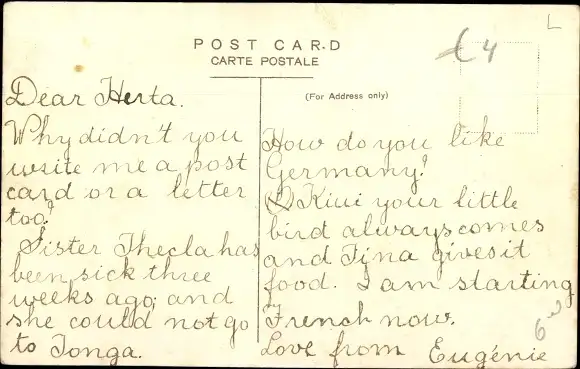 L
€4
POST CARD
CARTE POSTALE
(For Address only)
Dear Herta.
Why didn't you
write me a post
card or a letter
too?
Sister Thecla has
been sick three
weeks ago; and
she could not go
to Tonga.
How do you like
Germany?
Kiui your little
bird always comes
and Tina gives it
food. I am starting
French now.
Love from Eugénie